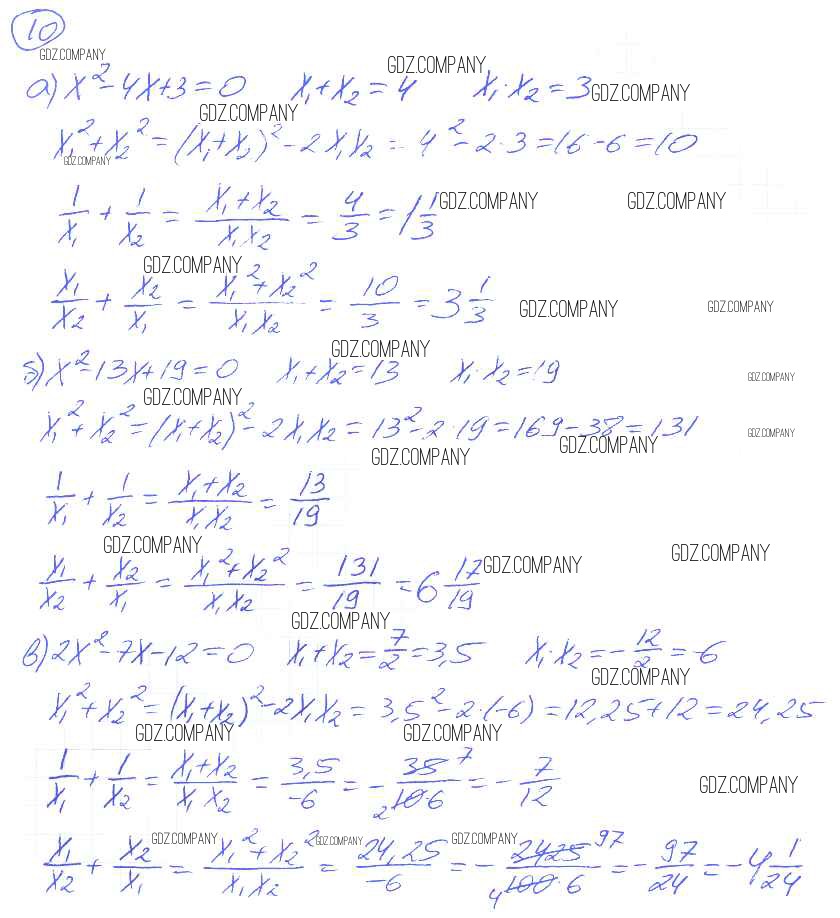 10
GDZ.COMPANY
а) x² - 4x + 3 = 0   x₁ + x₂ = 4   x₁ · x₂ = 3
GDZ.COMPANY GDZ.COMPANY
GDZ.COMPANY
x₁² + x₂² = (x₁ + x₂)² - 2x₁x₂ = 4² - 2 · 3 = 16 - 6 = 10
GDZ.COMPANY
1/x₁ + 1/x₂ = (x₁ + x₂)/(x₁x₂) = 4/3 = 1 1/3
GDZ.COMPANY GDZ.COMPANY
GDZ.COMPANY
x₁/x₂ + x₂/x₁ = (x₁² + x₂²)/(x₁x₂) = 10/3 = 3 1/3
GDZ.COMPANY GDZ.COMPANY
GDZ.COMPANY
б) x² - 13x + 19 = 0   x₁ + x₂ = 13   x₁ · x₂ = 19
GDZ.COMPANY
GDZ.COMPANY
x₁² + x₂² = (x₁ + x₂)² - 2x₁x₂ = 13² - 2 · 19 = 169 - 38 = 131
GDZ.COMPANY
GDZ.COMPANY
GDZ.COMPANY
1/x₁ + 1/x₂ = (x₁ + x₂)/(x₁x₂) = 13/19
GDZ.COMPANY
GDZ.COMPANY
x₁/x₂ + x₂/x₁ = (x₁² + x₂²)/(x₁x₂) = 131/19 = 6 17/19
GDZ.COMPANY
GDZ.COMPANY
в) 2x² - 7x - 12 = 0   x₁ + x₂ = 7/2 = 3,5   x₁ · x₂ = -12/2 = -6
GDZ.COMPANY
x₁² + x₂² = (x₁ + x₂)² - 2x₁x₂ = 3,5² - 2 · (-6) = 12,25 + 12 = 24,25
GDZ.COMPANY GDZ.COMPANY
1/x₁ + 1/x₂ = (x₁ + x₂)/(x₁x₂) = 3,5/-6 = - 35 7/2 10·6 = - 7/12
GDZ.COMPANY
GDZ.COMPANY GDZ.COMPANY GDZ.COMPANY
x₁/x₂ + x₂/x₁ = (x₁² + x₂²)/(x₁x₂) = 24,25/-6 = - 2425 97/4 100·6 = - 97/24 = -4 1/24